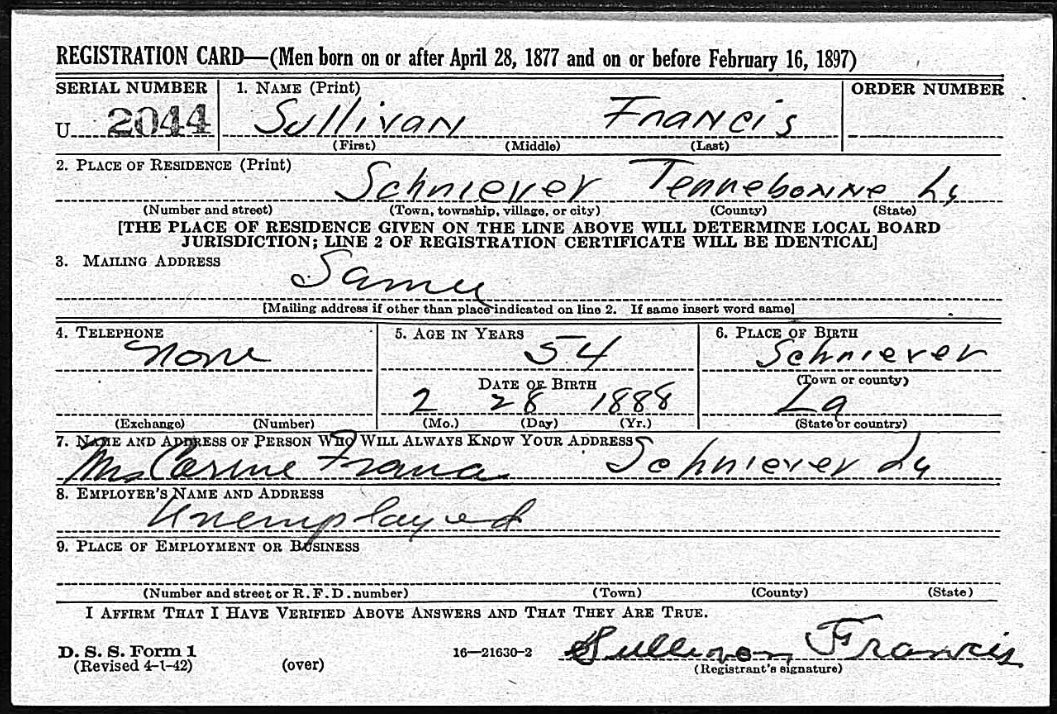 REGISTRATION CARD—(Men born on or after April 28, 1877 and on or before February 16, 1897)
SERIAL NUMBER 1. NAME (Print) ORDER NUMBER
U 2044 Sullivan Francis
(First) (Middle) (Last)
2. PLACE OF RESIDENCE (Print)
Schniever Tennebonne La
(Number and street) (Town, township, village, or city) (County) (State)
[THE PLACE OF RESIDENCE GIVEN ON THE LINE ABOVE WILL DETERMINE LOCAL BOARD
JURISDICTION; LINE 2 OF REGISTRATION CERTIFICATE WILL BE IDENTICAL]
3. MAILING ADDRESS
Same
[Mailing address if other than place indicated on line 2. If same insert word same]
4. TELEPHONE 5. AGE IN YEARS 6. PLACE OF BIRTH
None 54 Schniever
DATE OF BIRTH (Town or county)
2 28 1888 La
(Exchange) (Number) (Mo.) (Day) (Yr.) (State or country)
7. NAME AND ADDRESS OF PERSON WHO WILL ALWAYS KNOW YOUR ADDRESS
Mrs Schniever La
8. EMPLOYER'S NAME AND ADDRESS
Unemployed
9. PLACE OF EMPLOYMENT OR BUSINESS
(Number and street or R. F. D. number) (Town) (County) (State)
I AFFIRM THAT I HAVE VERIFIED ABOVE ANSWERS AND THAT THEY ARE TRUE.
D. S. S. Form 1
(Revised 4-1-42) (over) 16—21630-2 Sullivan Francis
(Registrant's signature)